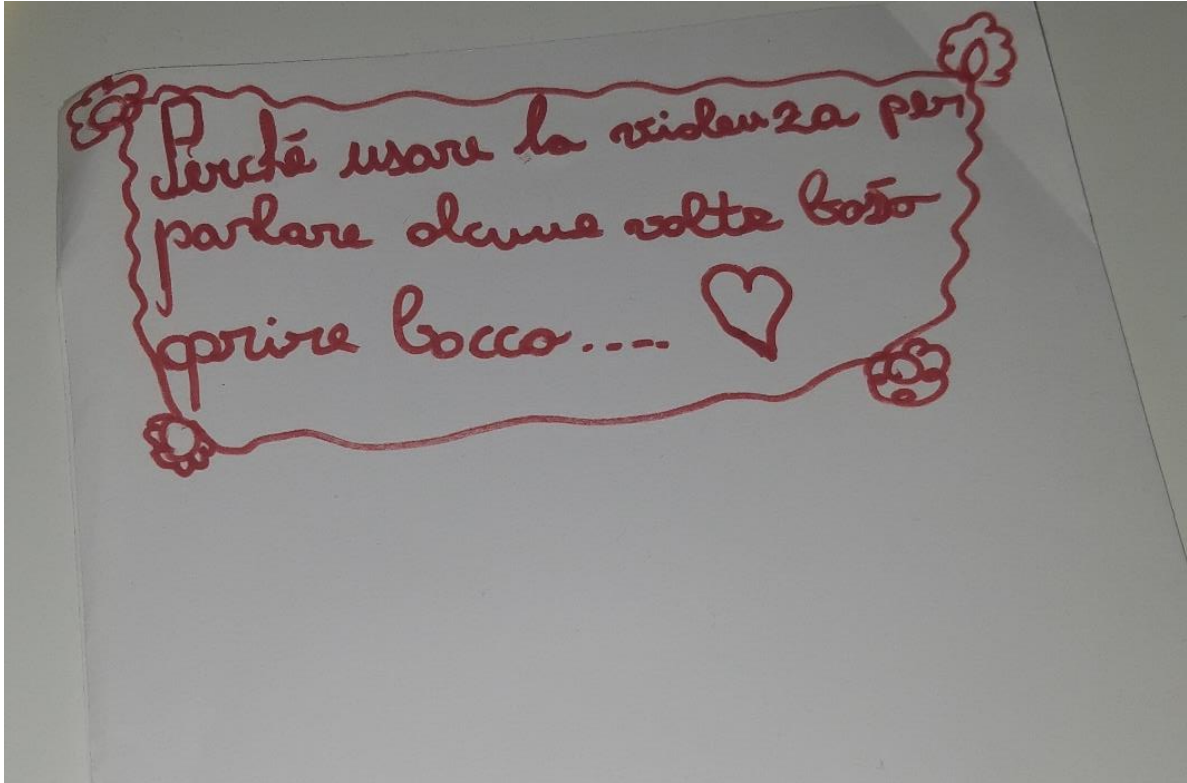 Perché usare la violenza per
parlare alcune volte basta
aprire bocca.... ♡